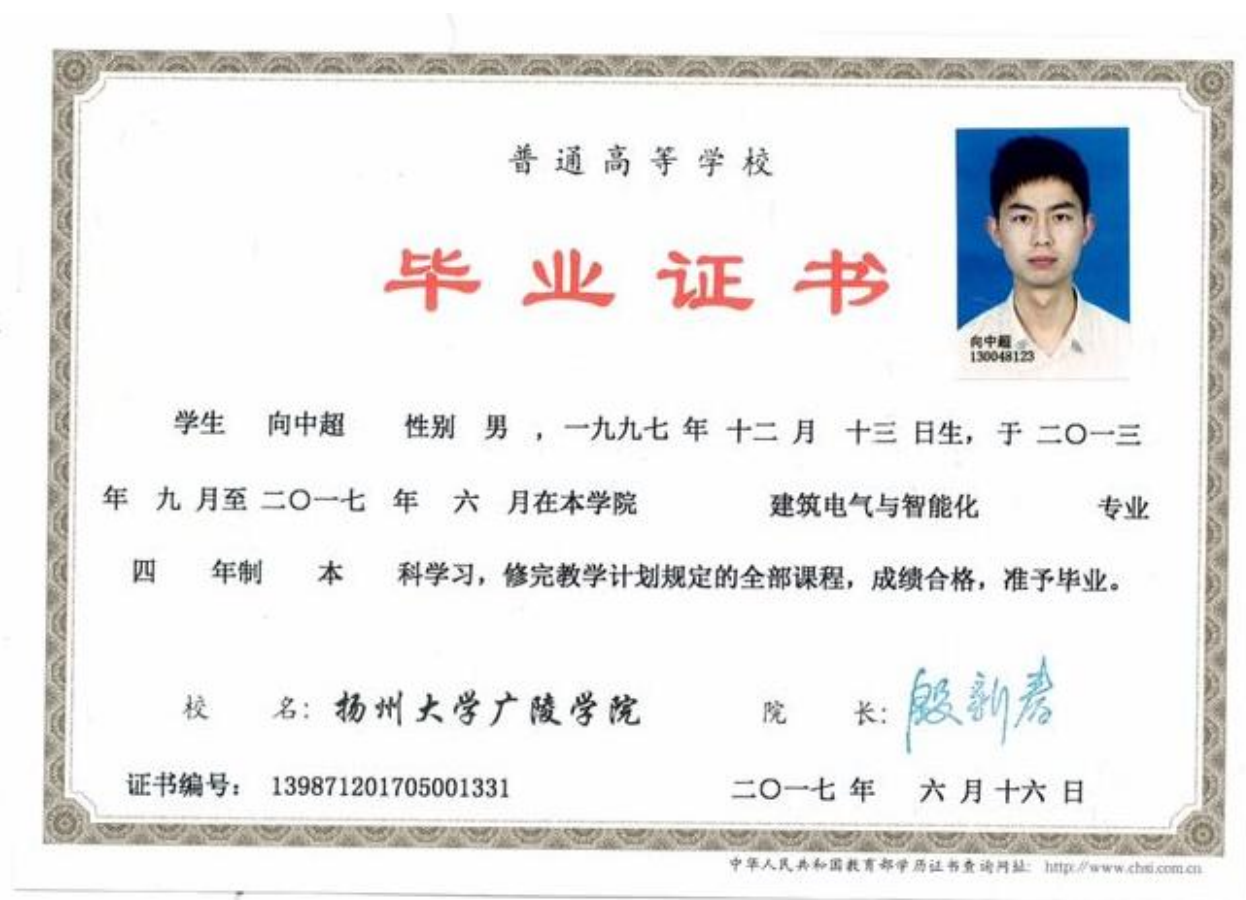 普通高等学校
毕业证书
向中超
130048123
学生 向中超 性别 男 ，一九九七 年 十二 月 十三 日生，于 二〇一三
年 九 月至 二〇一七 年 六 月在本学院 建筑电气与智能化 专业
四 年制 本 科学习，修完教学计划规定的全部课程，成绩合格，准予毕业。
校 名：扬州大学广陵学院 院 长：殷新春
证书编号： 139871201705001331 二〇一七 年 六 月 十六 日
中华人民共和国教育部学历证书查询网址： http://www.chsi.com.cn